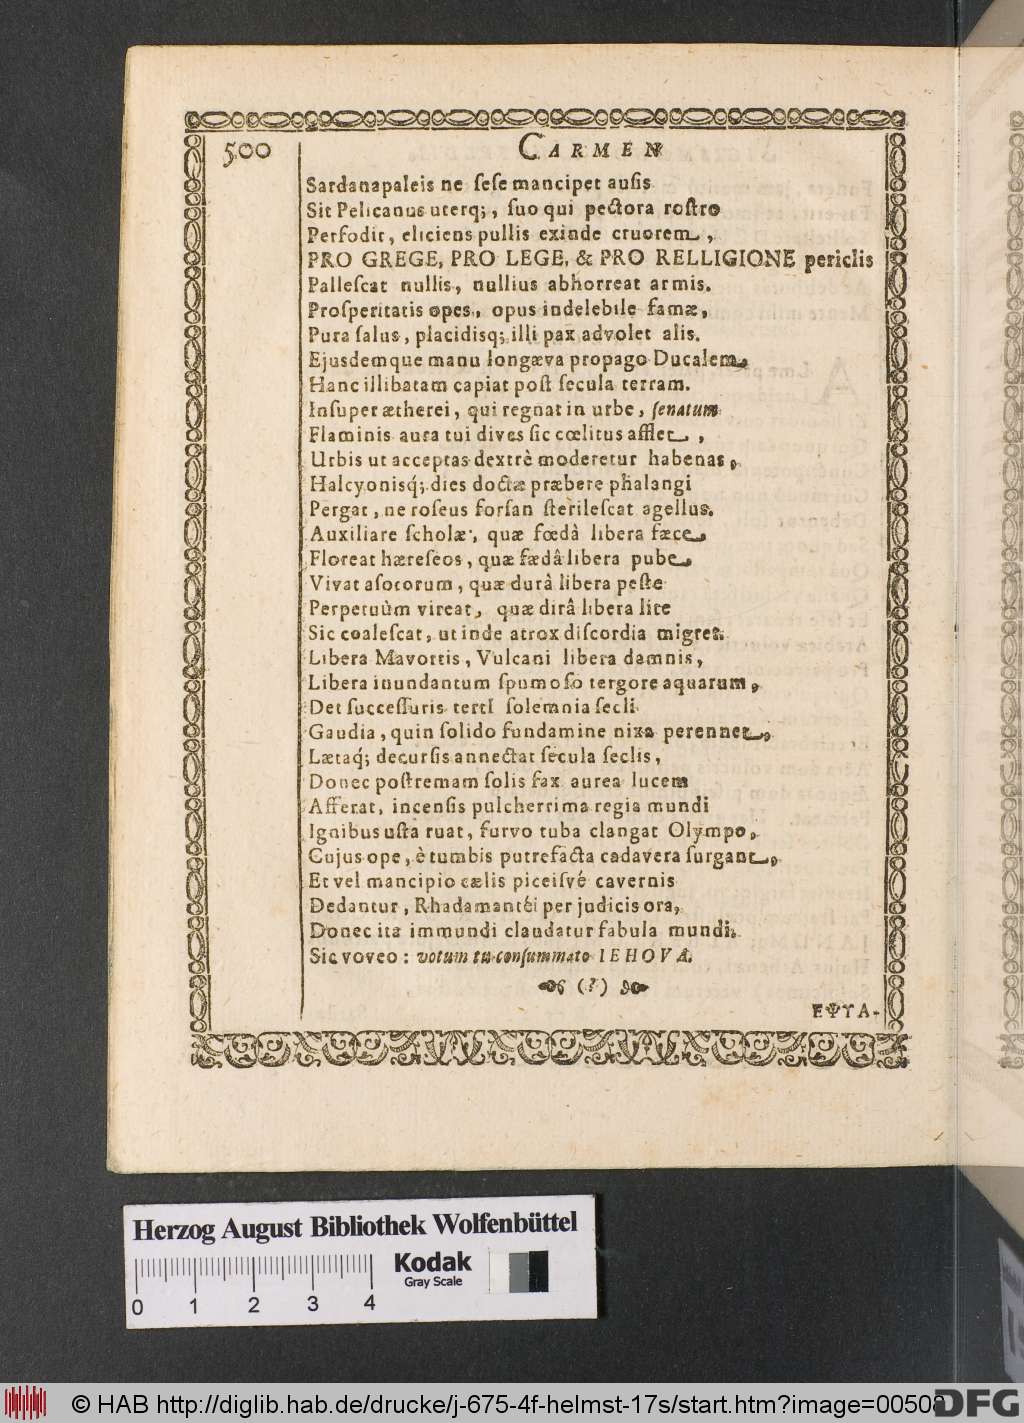 500 CARMEN
Sardanapaleis ne ſeſe mancipet auſis
Sit Pelicanus uterq;, ſuo qui pectora roſtro
Perfodit, eliciens pullis exinde cruorem,
PRO GREGE, PRO LEGE, & PRO RELLIGIONE periclis
Palleſcat nullis, nullius abhorreat armis.
Proſperitatis opes, opus indelebile famæ,
Pura ſalus, placidisq; illi pax advolet alis.
Ejusdemque manu longæva propago Ducalem,
Hanc illibatam capiat poſt ſecula terram.
Inſuper ætherei, qui regnat in urbe, ſenatum
Flaminis aura tui dives ſic cœlitus afflet,
Urbis ut acceptas dextrè moderetur habenas,
Halcyonisq́; dies doctæ præbere phalangi
Pergat, ne roſeus forſan ſterileſcat agellus.
Auxiliare ſcholæ, quæ fœdâ libera fæce,
Floreat hæreſeos, quæ fædâ libera pube,
Vivat aſotorum, quæ durâ libera peſte
Perpetuùm vireat, quæ dirâ libera lite
Sic coaleſcat, ut inde atrox diſcordia migret.
Libera Mavortis, Vulcani libera damnis,
Libera inundantum ſpumoſo tergore aquarum,
Det ſucceſſuris tertI ſolemnia ſecli
Gaudia, quin ſolido fundamine nixa perennet,
Lætaq́; decurſis annectat ſecula ſeclis,
Donec poſtremam ſolis fax aurea lucem
Afferat, incenſis pulcherrima regia mundi
Ignibus uſta ruat, furvo tuba clangat Olympo,
Cujus ope, è tumbis putrefacta cadavera ſurgant,
Et vel mancipio cælis piceiſvé cavernis
Dedantur, Rhadamantéi per judicis ora,
Donec ita immundi claudatur fabula mundi.
Sic voveo: votum tu conſummato IEHOVA.
(?)
ΕΨΤΑ-
Herzog August Bibliothek Wolfenbüttel
Kodak
Gray Scale
0 1 2 3 4
© HAB http://diglib.hab.de/drucke/j-675-4f-helmst-17s/start.htm?image=00508
DFG